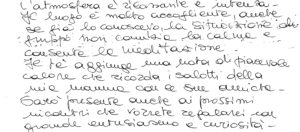 l'atmosfera è risonante e intensa.
Il luogo è molto accogliente, anche
se già lo conoscevo, la situazione di
non comincia, la calma e
consente la meditazione.
Il tè aggiunge una nota di piacevole
calore che ricorda i salotti della
mia mamma con le sue amiche.
Sarò presente anche ai prossimi
incontri che vorrete regalarci con
grande entusiasmo e curiosità.